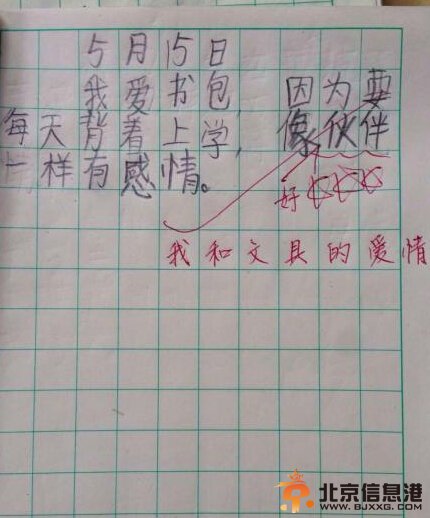 5月15日
我爱书包，因为要
每天背着上学，像伙伴
一样有感情。
好
我和文具的爱情
北京信息港
WWW.BJXXG.COM